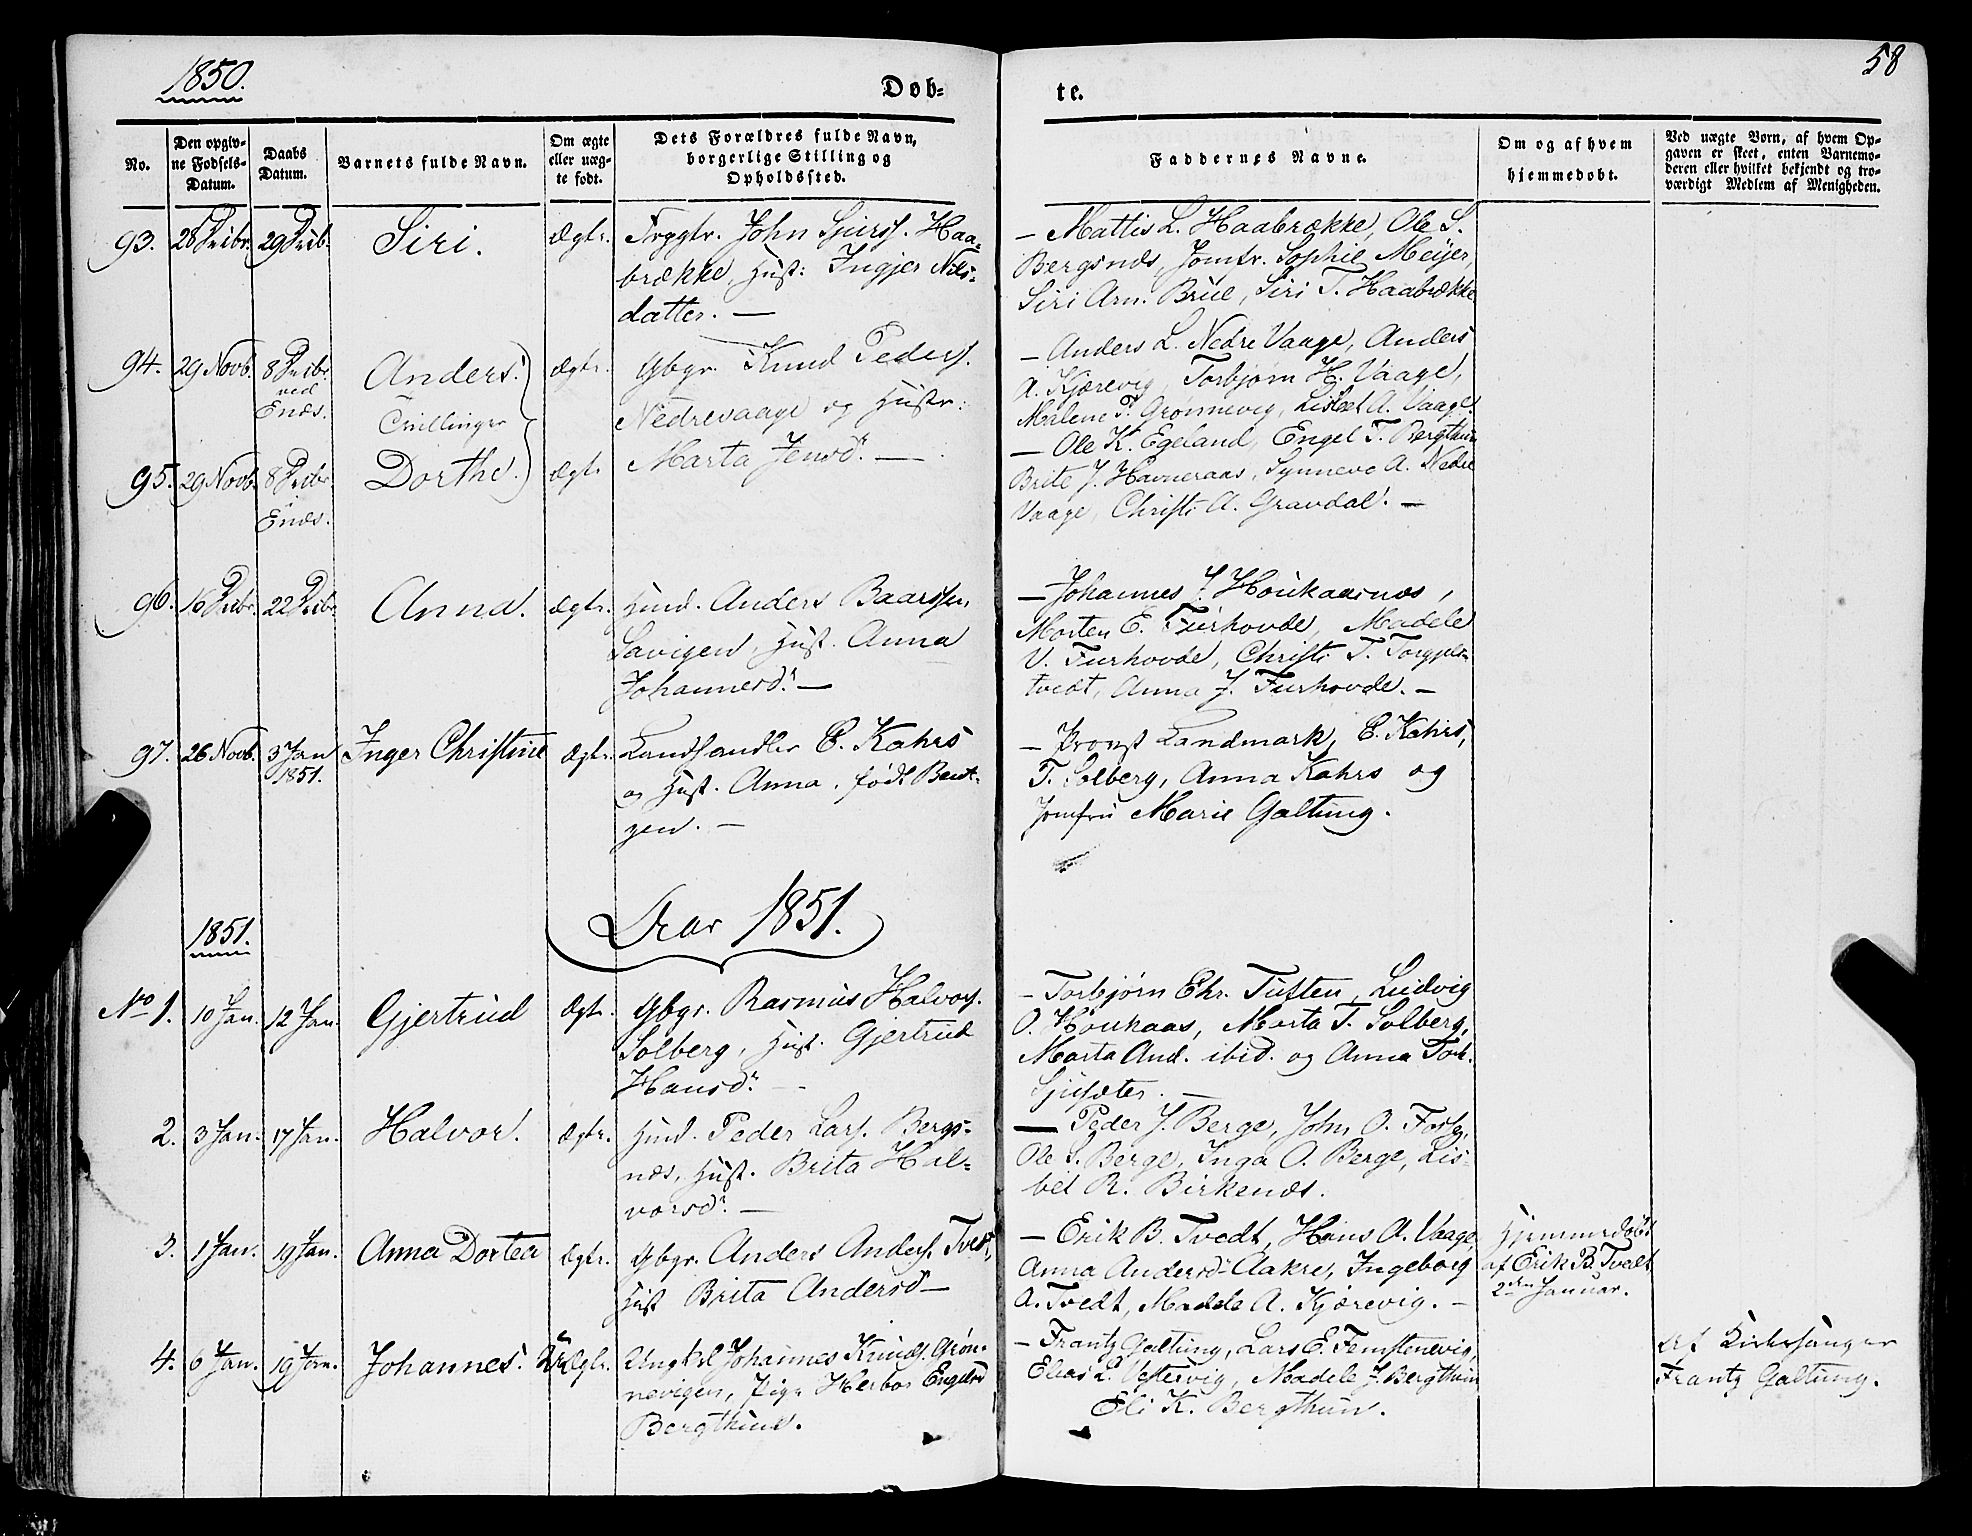 1850.
58
Døb-
te.
No.
Den opgiv-
ne Fødsels-
Datum.
Daabs
Datum.
Barnets fulde Navn.
Om ægte
eller uæg-
te født.
Dets Forældres fulde Navn,
borgerlige Stilling og
Opholdssted.
Faddernes Navne.
Om og af hvem
hjemmedøbt.
Ved uægte Børn, af hvem Op-
gaven er skeet, enten Barnemo-
deren eller hvilket bekjendt og tro-
værdigt Medlem af Menigheden.
93. 28 Decbr. 29 Decb. Siri. Ægte. John Sjurs. Haa-
brække, Hust: Ingjer Nils-
datter. —
— Mattis L. Haabrække, Ole S.
Bergsnæs, Jomfr. Sophie Meijer,
Siri Arn. Brue, Siri T. Haabrække
94. 29 Novb. 8 Decbr.
ved
Enæs.
Anders. Ægte. Gbgr. Knud Peders.
Nedrevaage og Hustr:
Marta Jensd. —
Tvillinger
— Anders L. Nedre Vaage, Anders
A. Kjærevig, Torbjørn H. Vaage,
Malene T. Grønnevig, Lisbet A. Vaage.
95. 29 Novb. 8 Decbr.
Enæs.
Dorthe. Ægte
— Ole K. Egeland, Engel T. Bergthun
Brite J. Havneraas, Synneve A. Nedre
Vaage, Christi A. Gravdal. —
96. 16 Decbr. 22 Decbr Anna. Ægte. Huusd. Anders Baarssen
Savigen, Hust. Anna
Johannesd. —
— Johannes J. Houkaasnæs,
Morten E. Furhovde, Madele
V. Furhovde, Christi T. Torgjels-
tvedt, Anna J. Furhovde. —
97. 26 Novb. 3 Jan
1851.
Inger Christine Ægte. Landhandler E. Kahrs
og Hust. Anna, født Bent-
zen. —
— Provst Landmark, E. Kahrs,
T. Solberg, Anna Kahrs og
Jomfru Marie Galtung.
Aar 1851.
1851.
No 1. 10 Jan. 12 Jan. Gjertrud Ægte. Gbgr. Rasmus Halvors.
Solberg, Hust. Gjertrud
Hansd.
— Torbjørn Chr. Tuften, Ludvig
O. Houkaas, Marta T. Solberg,
Marta And. ibid. og Anna Torb.
Sjusæter. —
2. 3 Jan. 17 Jan. Halvor. Ægte. Huusd. Peder Lars. Bergs-
næs, Hust. Brita Hal-
vorsd. —
— Peder J. Berge, John O.
Ole S. Berge, Inga O. Berge, Lis-
bet R. Birkenæs.
3. 1 Jan. 19 Jan. Anna Dortea Ægte. Gbgr. Anders Anders. Tvedt,
Hust Brita Andersd —
— Erik B. Tvedt, Hans A. Vaage,
Anna Andersd. Aakre, Ingeborg
A. Tvedt, Madele A. Kjærevig. —
Hjemmedøbt
af Erik B. Tvedt
2den Januar.
4. 6 Jan. 19 Jan. Johannes. Uægte. Ungkl Johannes Knuds. Grøn-
nevigen, Pige Herbor Engelsd
Bergthun.
— Frantz Galtung, Lars E. Femstenevig,
Elias L. Vestervig, Madele J. Bergthun
Eli K. Bergthun.
Af Kirkesanger
Frantz Galtung.